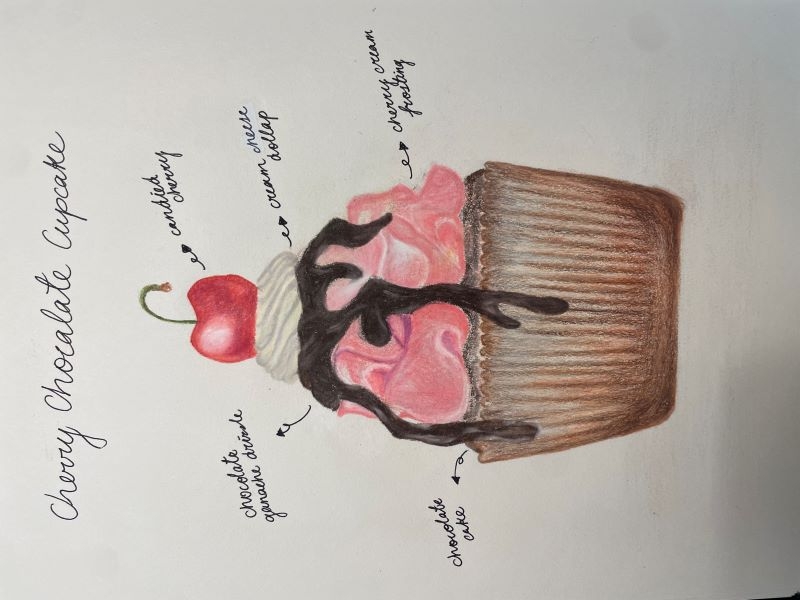 Cherry Chocalate Cupcake
candied
cherry
cream cheese
dollap
cherry cream
frosting
chocolate
ganache drizzle
chocolate
cake